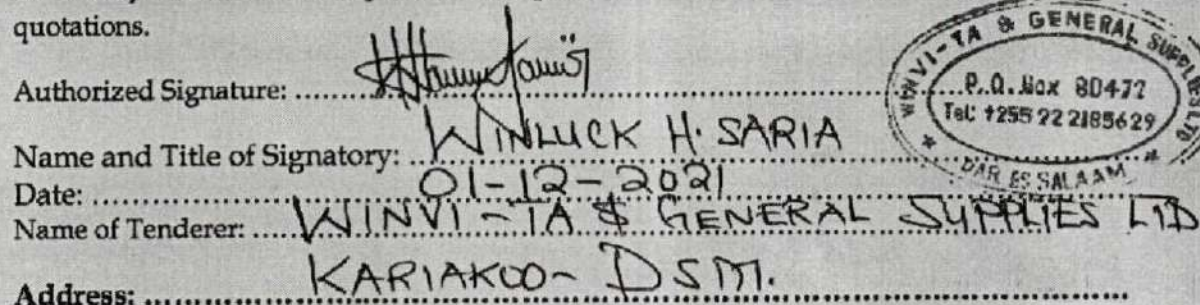 quotations.
Authorized Signature:
Name and Title of Signatory: WINLUCK H. SARIA
Date: 01-12-2021
Name of Tenderer: WINVI-TA & GENERAL SUPPLIES LTD
Address: KARIAKOO- DSM.
WINVI-TA & GENERAL SUPPLIES LTD
P.O. Box 80472
Tel: +255 22 2185629
* DAR ES SALAAM *